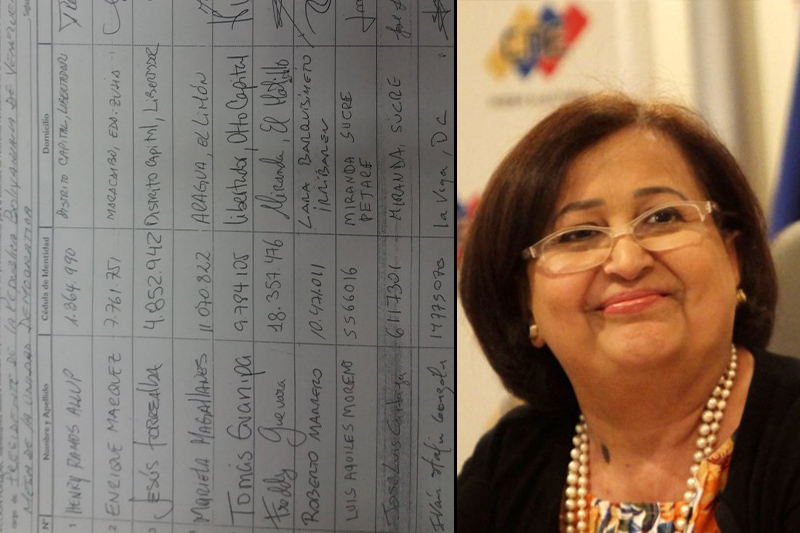 PRESIDENTE DE LA REPÚBLICA BOLIVARIANA DE VENEZUELA
MESA DE LA UNIDAD DEMOCRÁTICA
Nº Nombre y Apellido Cédula de Identidad Domicilio
1 HENRY RAMOS ALLUP 1.364.990 DISTRITO CAPITAL, LIBERTADOR
2 ENRIQUE MARQUEZ 7.761.751 MARACAIBO, EDO. ZULIA
3 JESÚS TORREALBA 4.852.942 Distrito Capital, Libertador
MARIELA MAGALLANES 11 070 822 ARAGUA, el Limón
Tomás Guanipa 9.784 105 Libertador, Dtto Capital
Freddy Guevara 18.357.476 Miranda, El Hatillo
ROBERTO MARRERO 10.471.011 LARA BARQUISIMETO
IRIBARREN
LUIS AQUILES MORENO 5566016 MIRANDA SUCRE
PETARE
Jose Luis Cartaya 6117301 MIRANDA, SUCRE
Iván Stalin González 14775070 La Vega, DC
CNE